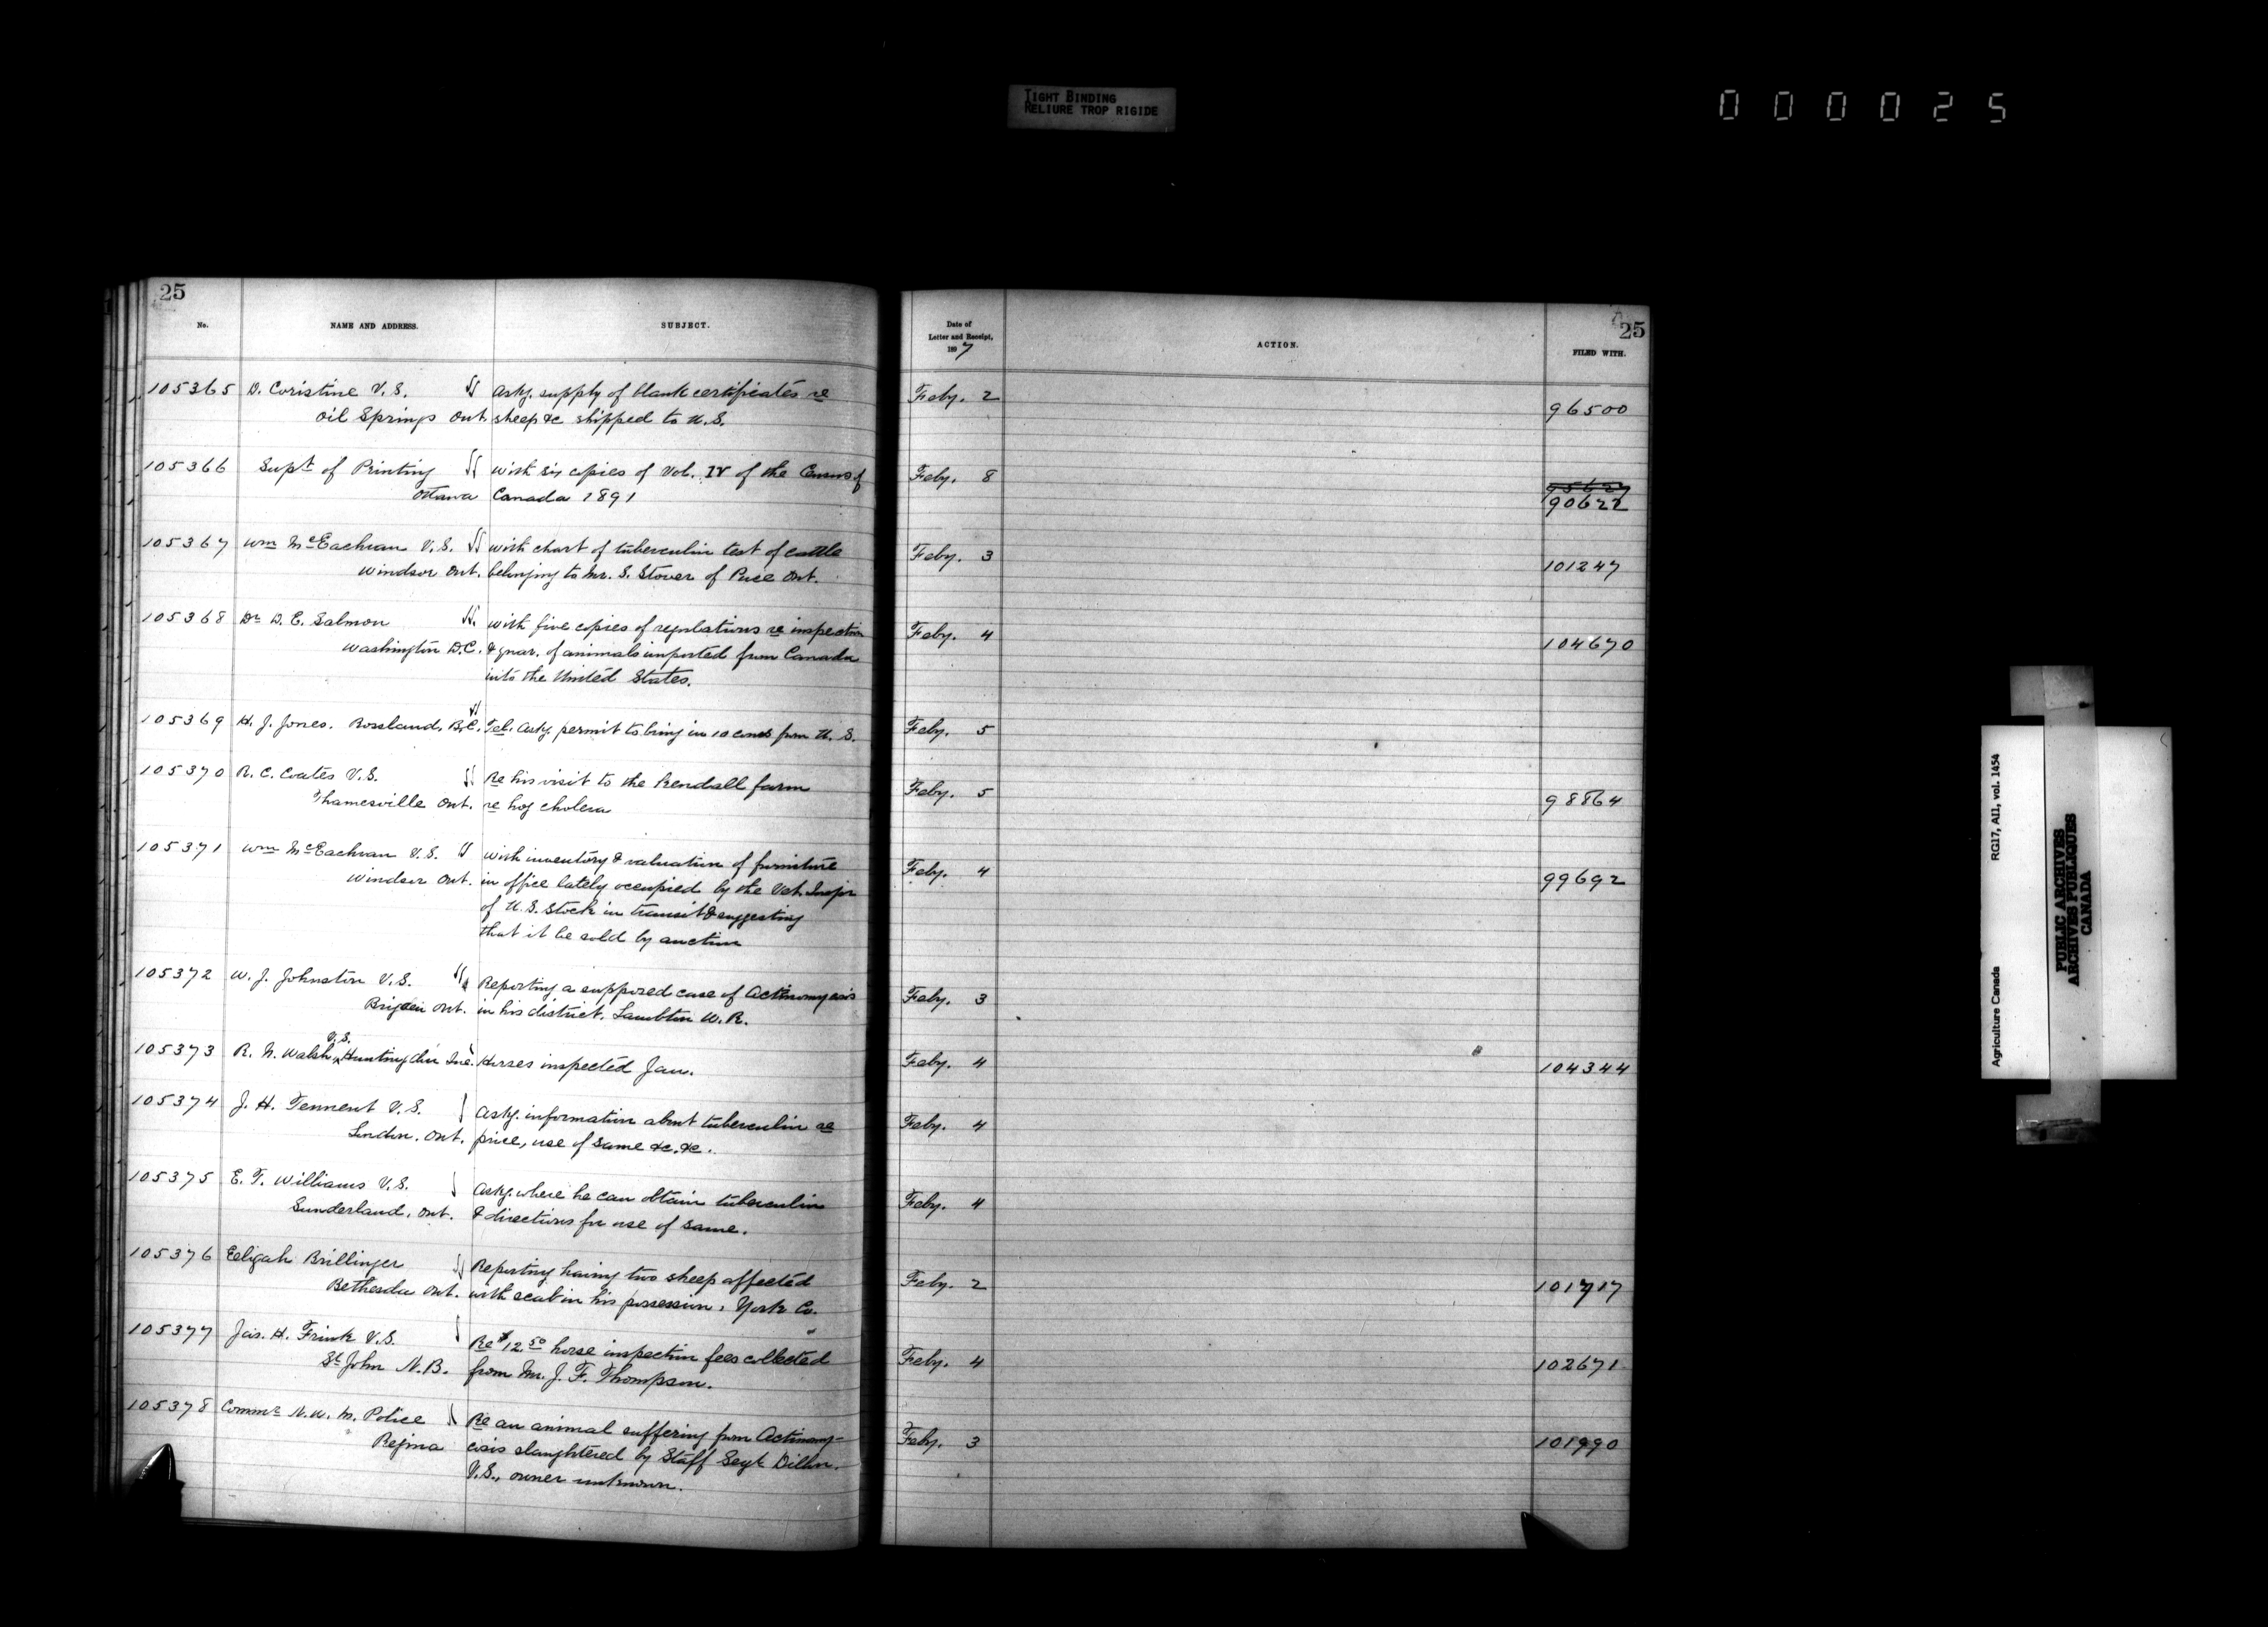 TIGHT BINDING
RELIURE TROP RIGIDE
000025
25
No.
NAME AND ADDRESS.
SUBJECT.
105365 D. Coristine V.S. Askg. supply of blank certificates re
Oil Springs Ont sheep &c shipped to U.S.
105366 Supt of Printing with six copies of Vol. IV of the Census of
Ottawa Canada 1891
105367 Wm McEachran V.S. with chart of tuberculin test of cattle
Windsor Ont. belonging to Mr. S. Stover of Puce Ont.
105368 Dr D. E. Salmon with five copies of regulations re inspection
Washington D.C. & quar. of animals imported from Canada
into the United States.
105369 H. J. Jones. Rossland, B.C. Tel. askg. permit to bring in 10 cows from U. S.
105370 R. C. Coates V.S. Re his visit to the Kendall farm
Thamesville Ont. re hog cholera
105371 Wm McEachran V.S. with inventory & valuation of furniture
Windsor Ont. in office lately occupied by the Vet. Inspr
of U.S. Stock in transit & suggesting
that it be sold by auction
105372 W. J. Johnston V.S. Reporting a supposed case of Actinomycosis
Brigden Ont. in his district, Lambton W.R.
V.S.
105373 R. N. Walsh, Huntingdon Que. Horses inspected Jan.
105374 J. H. Tennent V.S. Askg. information about tuberculin re
London, Ont. price, use of same &c. &c.
105375 E. T. Williams V.S. Askg. where he can obtain tuberculin
Sunderland, Ont. & directions for use of same.
105376 Eeligah Brillinger Reporting having two sheep affected
Bethesda Ont. with scab in his possession, York Co.
105377 Jas. H. Frink V.S. Re $12.50 horse inspection fees collected
St John N.B. from Mr. J. F. Thompson.
105378 Commr N.W.M. Police Re an animal suffering from Actinomy-
Regina cosis slaughtered by Staff Sergt Dillon.
V.S., owner unknown.
25
Date of
Letter and Receipt,
1897
ACTION.
FILED WITH.
Feby. 2 96500
Feby. 8
90622
Feby. 3 101247
Feby. 4 104670
Feby. 5
Feby. 5 98864
Feby. 4 99692
Feby. 3
Feby. 4 104344
Feby. 4
Feby. 4
Feby. 2 101717
Feby. 4 102671
Feby. 3 101990
Agriculture Canada RG17, AII, vol. 1454
PUBLIC ARCHIVES
ARCHIVES PUBLIQUES
CANADA